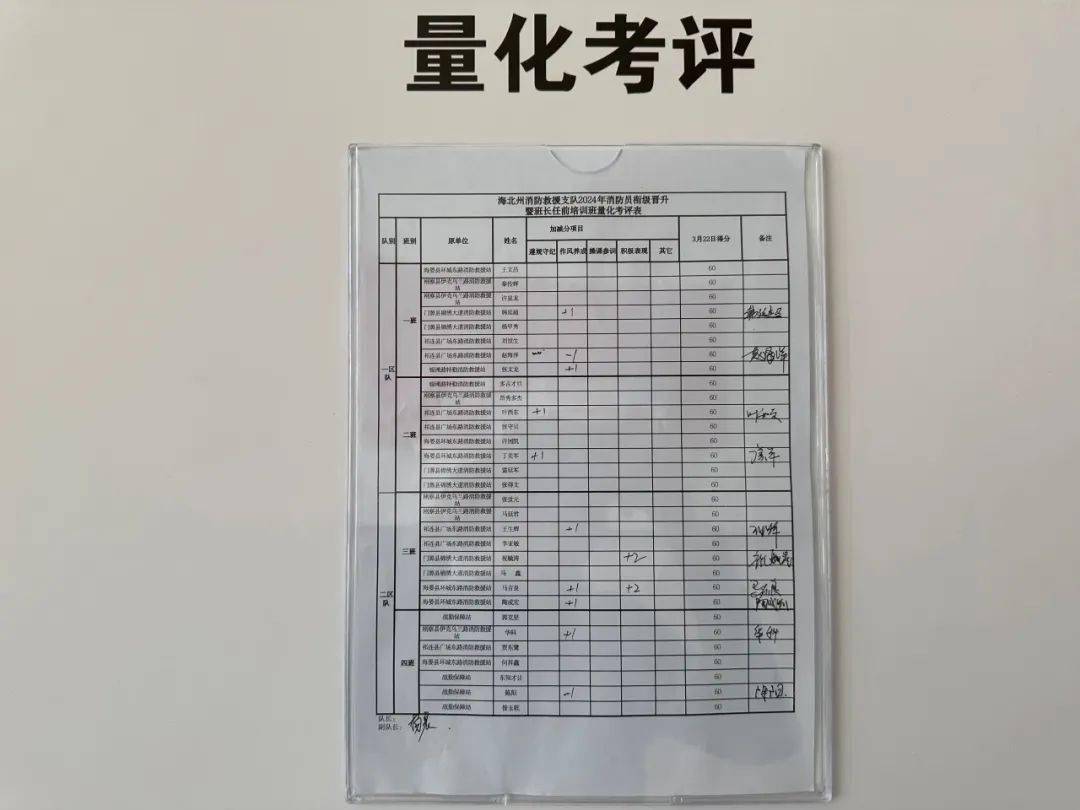 量化考评
海北州消防救援支队2024年消防员衔级晋升
暨班长任前培训班量化考评表
队别 班别 原单位 姓名 加减分项目 3月22日得分 备注
遵规守纪 作风养成 操课参训 积极表现 其它
一区队
一班
海晏县环城东路消防救援站 王文昌 60
刚察县伊克乌兰路消防救援站 秦传辉 60
刚察县伊克乌兰路消防救援站 许显龙 60
门源县锦绣大道消防救援站 +1 60
门源县锦绣大道消防救援站 杨甲秀 60
祁连县广场东路消防救援站 刘世生 60
祁连县广场东路消防救援站 赵海洋 -1 60
特勤消防救援站 张文龙 +1 60
二班
特勤消防救援站 60
刚察县伊克乌兰路消防救援站 昂秀多杰 60
祁连县广场东路消防救援站 叶西东 +1 60
祁连县广场东路消防救援站 张守贝 60
海晏县环城东路消防救援站 许国凯 60
海晏县环城东路消防救援站 丁英军 +1 60
门源县锦绣大道消防救援站 60
门源县锦绣大道消防救援站 60
二区队
三班
刚察县伊克乌兰路消防救援站 张世元 60
刚察县伊克乌兰路消防救援站 马延君 60
祁连县广场东路消防救援站 王生辉 +1 60
祁连县广场东路消防救援站 李亚敏 60
门源县锦绣大道消防救援站 祝毓涛 +2 60
门源县锦绣大道消防救援站 马 鑫 60
海晏县环城东路消防救援站 马吉良 +1 +2 60
海晏县环城东路消防救援站 陶成宏 +1 60
四班
战勤保障站 60
刚察县伊克乌兰路消防救援站 华科 +1 60
祁连县广场东路消防救援站 贾东鹭 60
海晏县环城东路消防救援站 何邦鑫 60
战勤保障站 60
战勤保障站 陈阳 -1 60
战勤保障站 60
队长:
副队长: